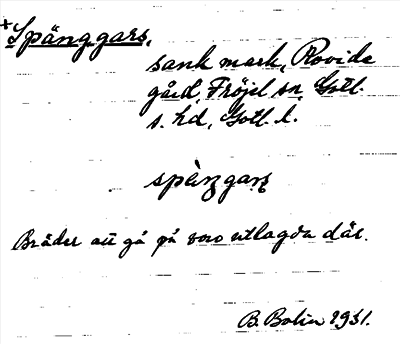 +Spänggars,
sank mark, Rovide
gård, Fröjel sn, Gotl.
s. hd, Gotl. l.
spàŋgaṛṣ
Bräder att gå på voro utlagda där.
B. Bolin 1931.